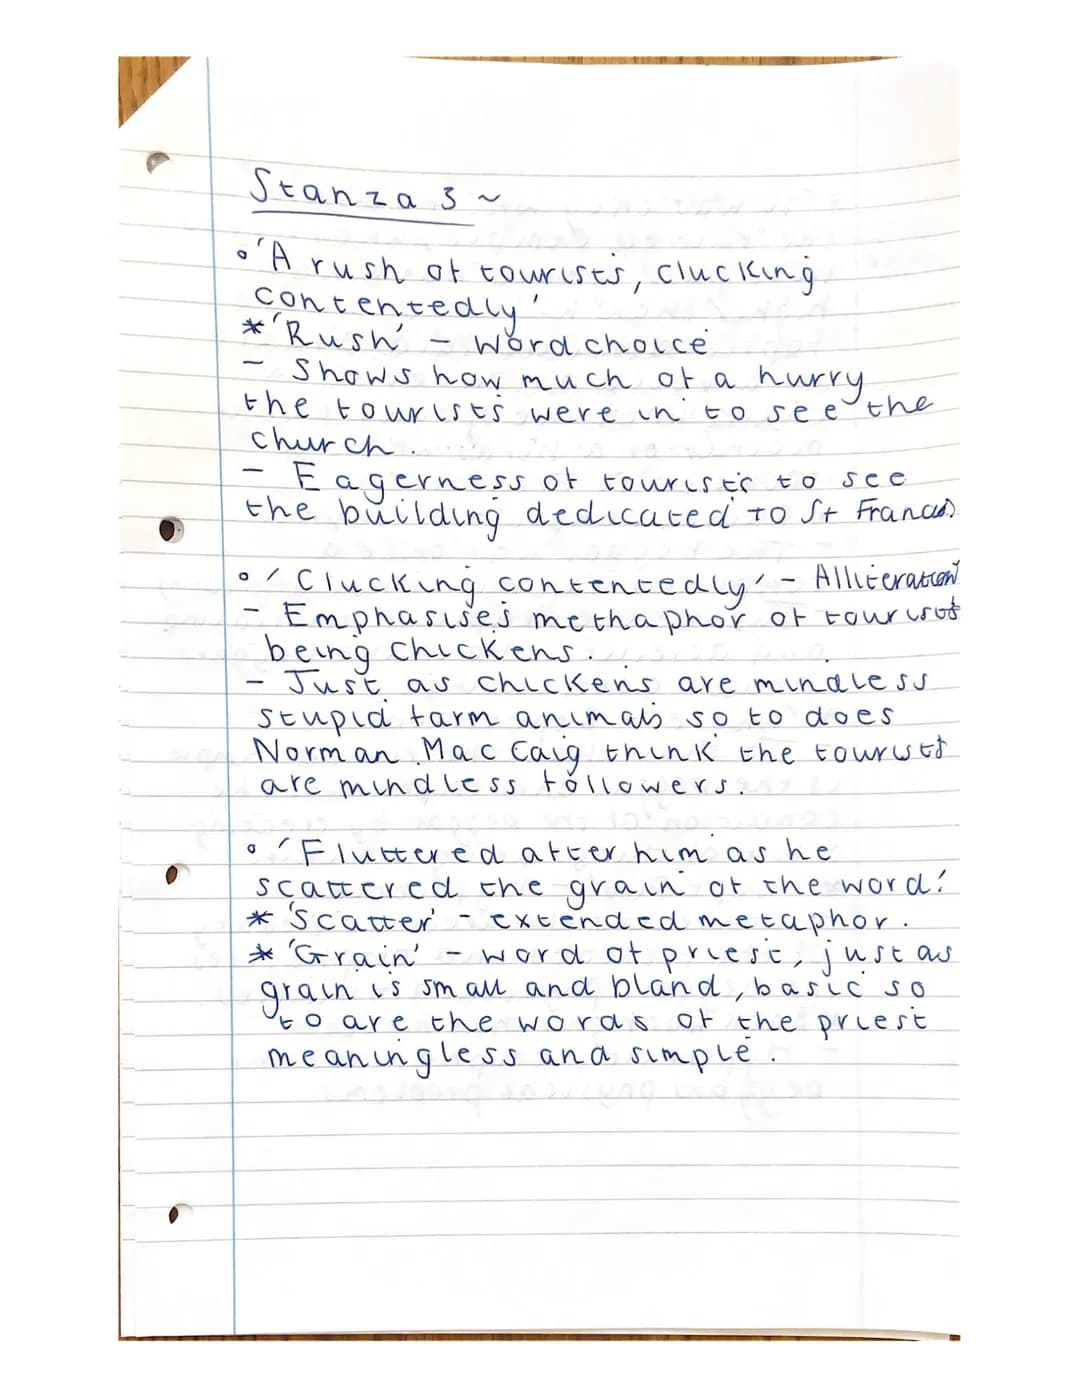 Stanza 3 ~
• 'A rush of tourists, clucking
contentedly'
* 'Rush' - Word choice
- Shows how much of a hurry
the tourists were in to see the
church.
- Eagerness of tourists to see
the building dedicated to St Francis
• 'Clucking contentedly' - Alliteration
- Emphasises methaphor of tourists
being chickens.
- Just as chickens are mindless
stupid farm animals so to does
Norman MacCaig think the tourists
are mindless followers.
• 'Fluttered after him as he
scattered the grain of the word.'
* 'Scatter' - extended metaphor.
* 'Grain' - word of priest, just as
grain is small and bland, basic so
to are the words of the priest
meaningless and simple.